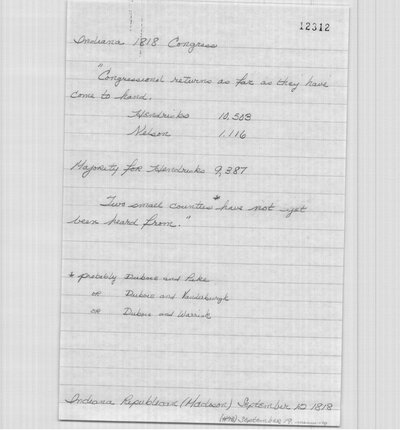 12312
Indiana 1818 Congress
"Congressional returns as far as they have
come to hand.
Hendricks 10,503
Nelson 1,116
Majority for Hendricks 9,387
Two small counties * have not yet
been heard from."
* probably Dubois and Pike
OR Dubois and Vanderburgh
OR Dubois and Warrick
Indiana Republican (Madison) September 12 1818
September 19 missing